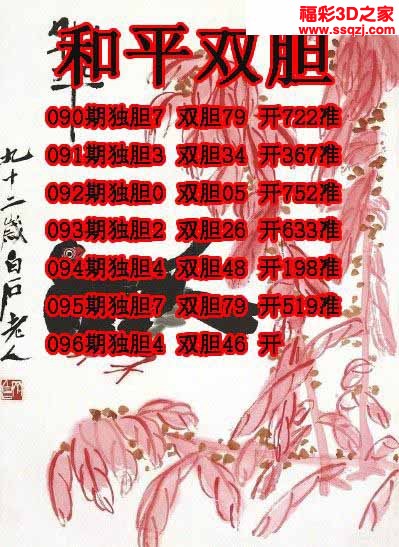 福彩3D之家
www.ssqzj.com
和平双胆
090期独胆7 双胆79 开722准
091期独胆3 双胆34 开367准
092期独胆0 双胆05 开752准
093期独胆2 双胆26 开633准
094期独胆4 双胆48 开198准
095期独胆7 双胆79 开519准
096期独胆4 双胆46 开
九十二岁白石老人